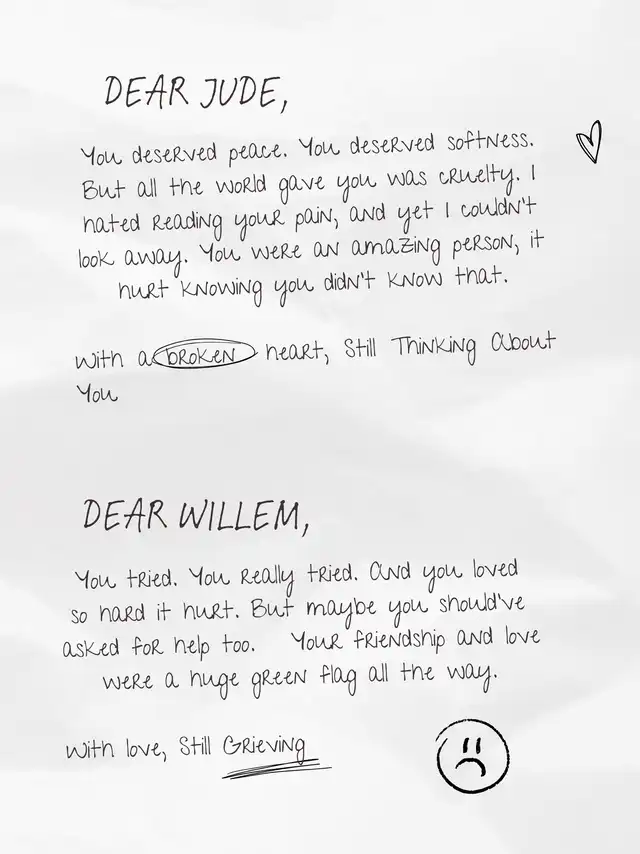 DEAR JUDE,
You deserved peace. You deserved softness.
But all the world gave you was cruelty. I
hated reading your pain, and yet I couldn't
look away. You were an amazing person, it
hurt knowing you didn't know that.
With a broken heart, Still Thinking About
You
DEAR WILLEM,
You tried. You really tried. And you loved
so hard it hurt. But maybe you should've
asked for help too. Your friendship and love
were a huge green flag all the way.
With love, Still Grieving